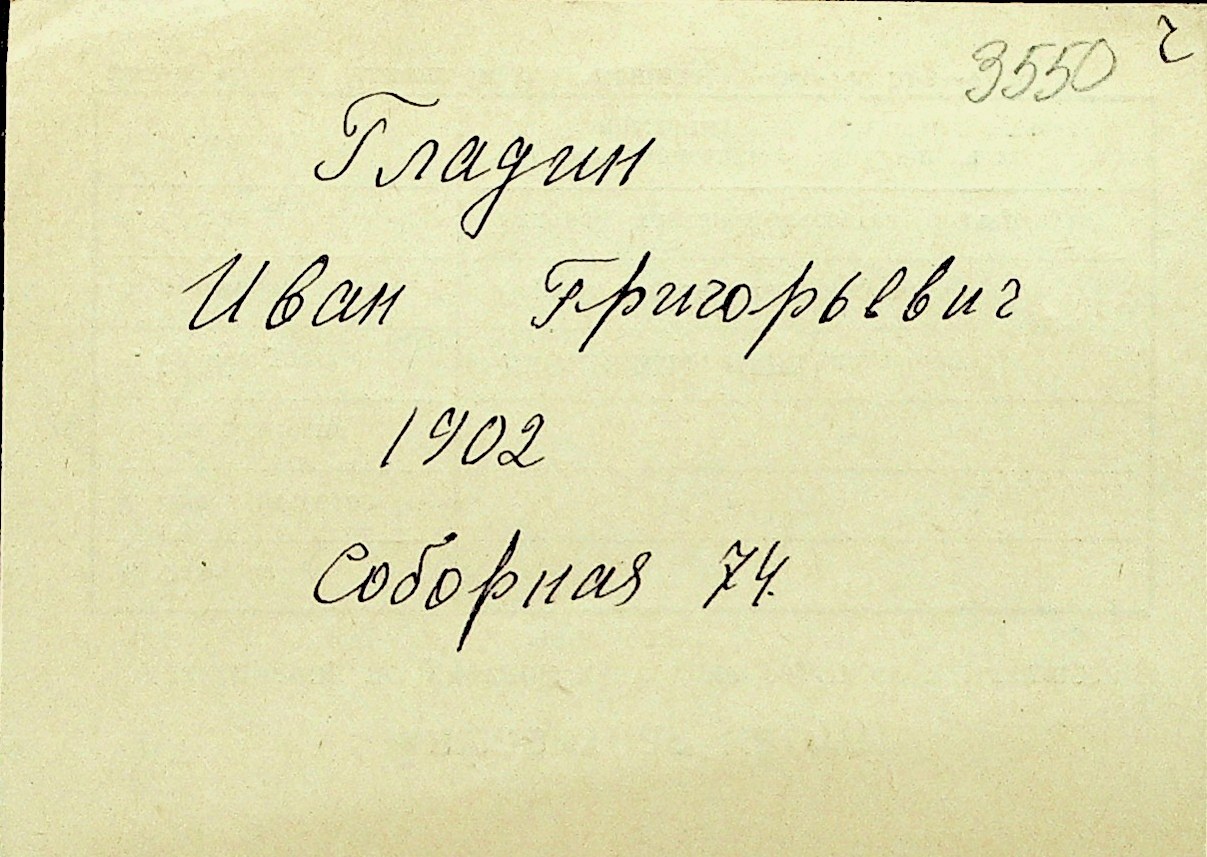 3550 г
Гладин
Иван Григорьевич
1902
Соборная 74.